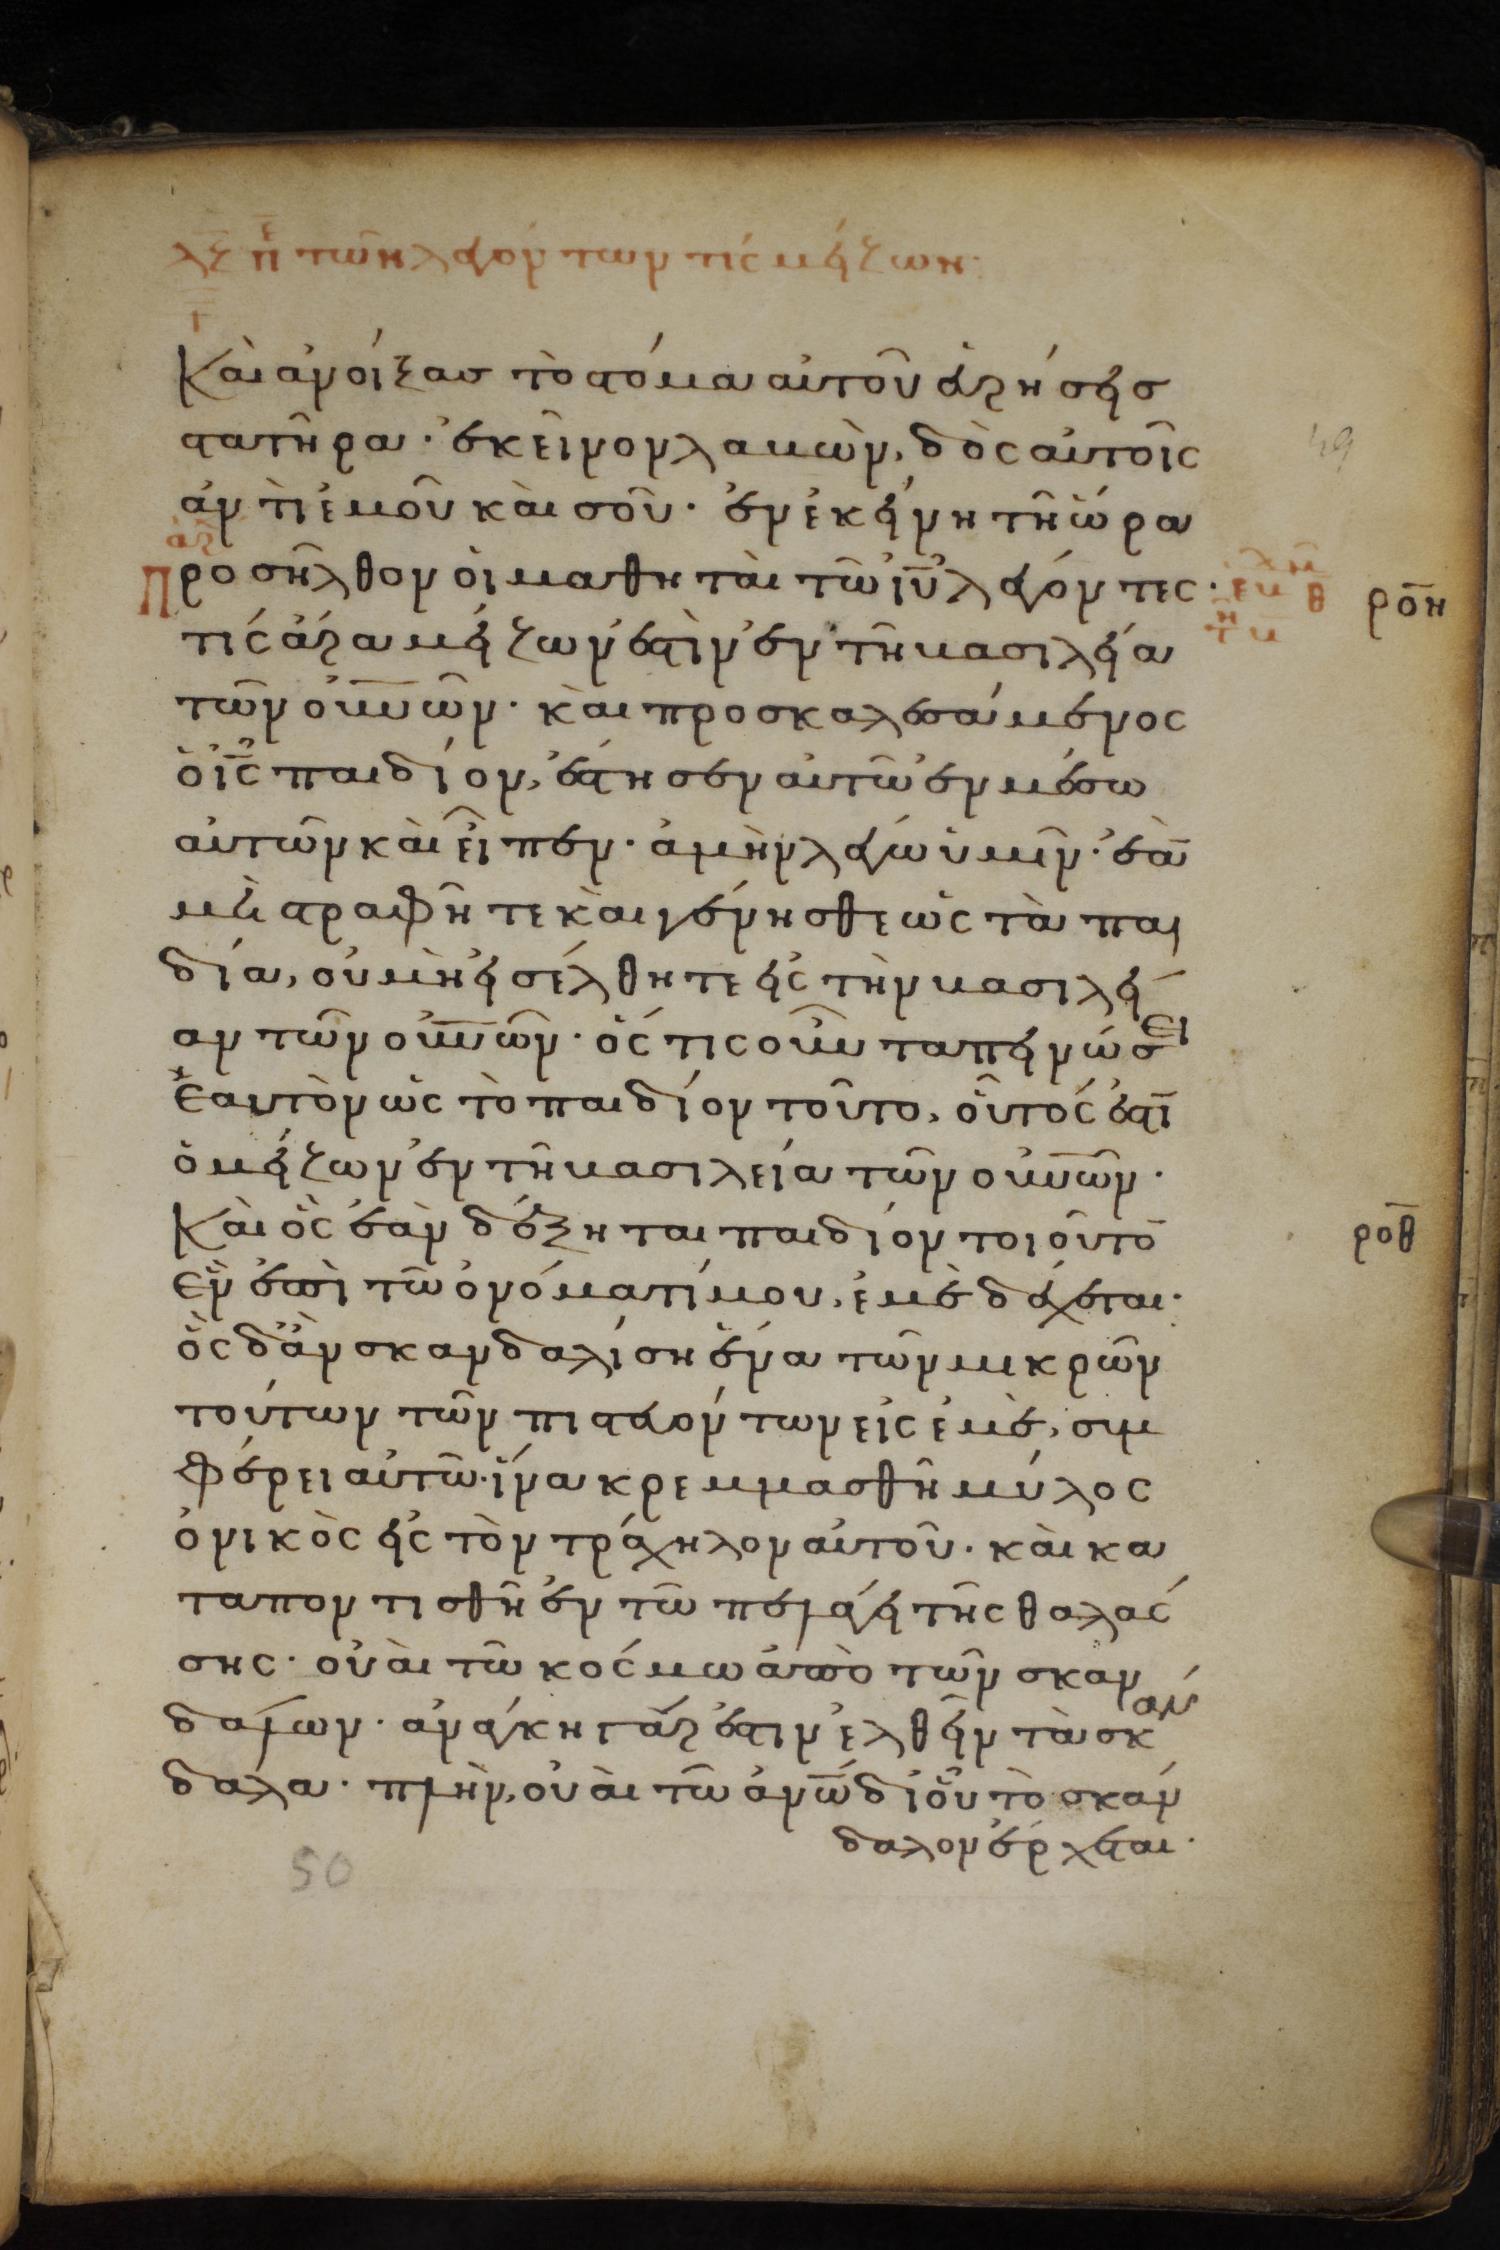 λζ πε τῶν λεγόντων τίς μείζων·
Καὶ ἀνοίξασ τὸ στόμα αὐτοῦ εὑρήσεισ
στατῆρα· ἐκεῖνον λαβὼν, δὸς αὐτοῖς
ἀντὶ ἐμοῦ καὶ σοῦ· ἐν ἐκείνη τῆ ὥρα
Προσῆλθον οἱ μαθηταὶ τῶ ἰῦ λέγοντες·
ρο̅η
τίς ἄρα μείζων ἐστὶν ἐν τῆ βασιλεία
τῶν οὐνῶν· καὶ προσκαλεσάμενος
ὁ ἰς παιδίον, ἔστησεν αὐτῶ ἐν μέσω
αὐτῶν καὶ εἶπεν· ἀμὴν λέγω ὑμῖν· ἐὰ̅
μὴ στραφῆτε καὶ γένησθε ὡς τὰ παι
δία, οὐ μὴ εἰσέλθητε εἰς τὴν βασιλεί
αν τῶν οὐνῶν· ὅς τις οὖν ταπεινώσει
ἑαυτὸν ὡς τὸ παιδίον τοῦτο, οὗτός ἐστῑ
ὁ μείζων ἐν τῆ βασιλεία τῶν οὐνῶν·
Καὶ ὃς ἐὰν δέξηται παιδίον τοιοῦτο̅
ρο̅θ
ἓν ἐπὶ τῶ ὀνόματί μου, ἐμὲ δέχεται·
ὃς δ' ἂν σκανδαλίση ἕνα τῶν μικρῶν
τούτων τῶν πιστευόντων εἰς ἐμέ, συμ
φέρει αὐτῶ· ἵνα κρεμμασθῆ μύλος
ὀνικὸς εἰς τὸν τράχηλον αὐτοῦ· καὶ κα
ταποντισθῆ ἐν τῶ πελάγει τῆς θαλάσ
σης· οὐαὶ τῶ κόσμω ἀπὸ τῶν σκαν
δάλων· ἀνάγκη γάρ ἐστιν ἐλθεῖν τὰ σκάν
δαλα· πλὴν, οὐαὶ τῶ ἀνω̅ δι' οὗ τὸ σκάν
δαλον ἔρχεται·
50